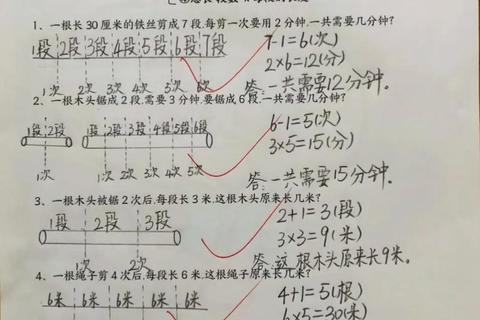 1、一根长30厘米的铁丝剪成7段,每剪一次要用2分钟,一共需要几分钟?
1段 2段 3段 4段 5段 6段 7段
7-1=6(次)
2×6=12(分)
1次 2次 3次 4次 5次 6次
答:一共需要12分钟。
2、一根木头锯成2段,需要3分钟,要锯成6段,一共需要几分钟?
1段 2段 1段 2段 3段 4段 5段 6段
6-1=5(次)
3×5=15(分)
1次 1次 2次 3次 4次 5次
答:一共需要15分钟.
3、一根木头被锯2次后,每段长3米,这根木头原来长几米?
1段 2段 3段
2+1=3(段)
3×3=9(米)
1次 2次
答:这根木头原来长9米。
4、一根绳子剪4次后,每段长6米,这根绳子原来长几米?
6米 6米 6米 6米 6米
4+1=5(根)
6×5=30(米)